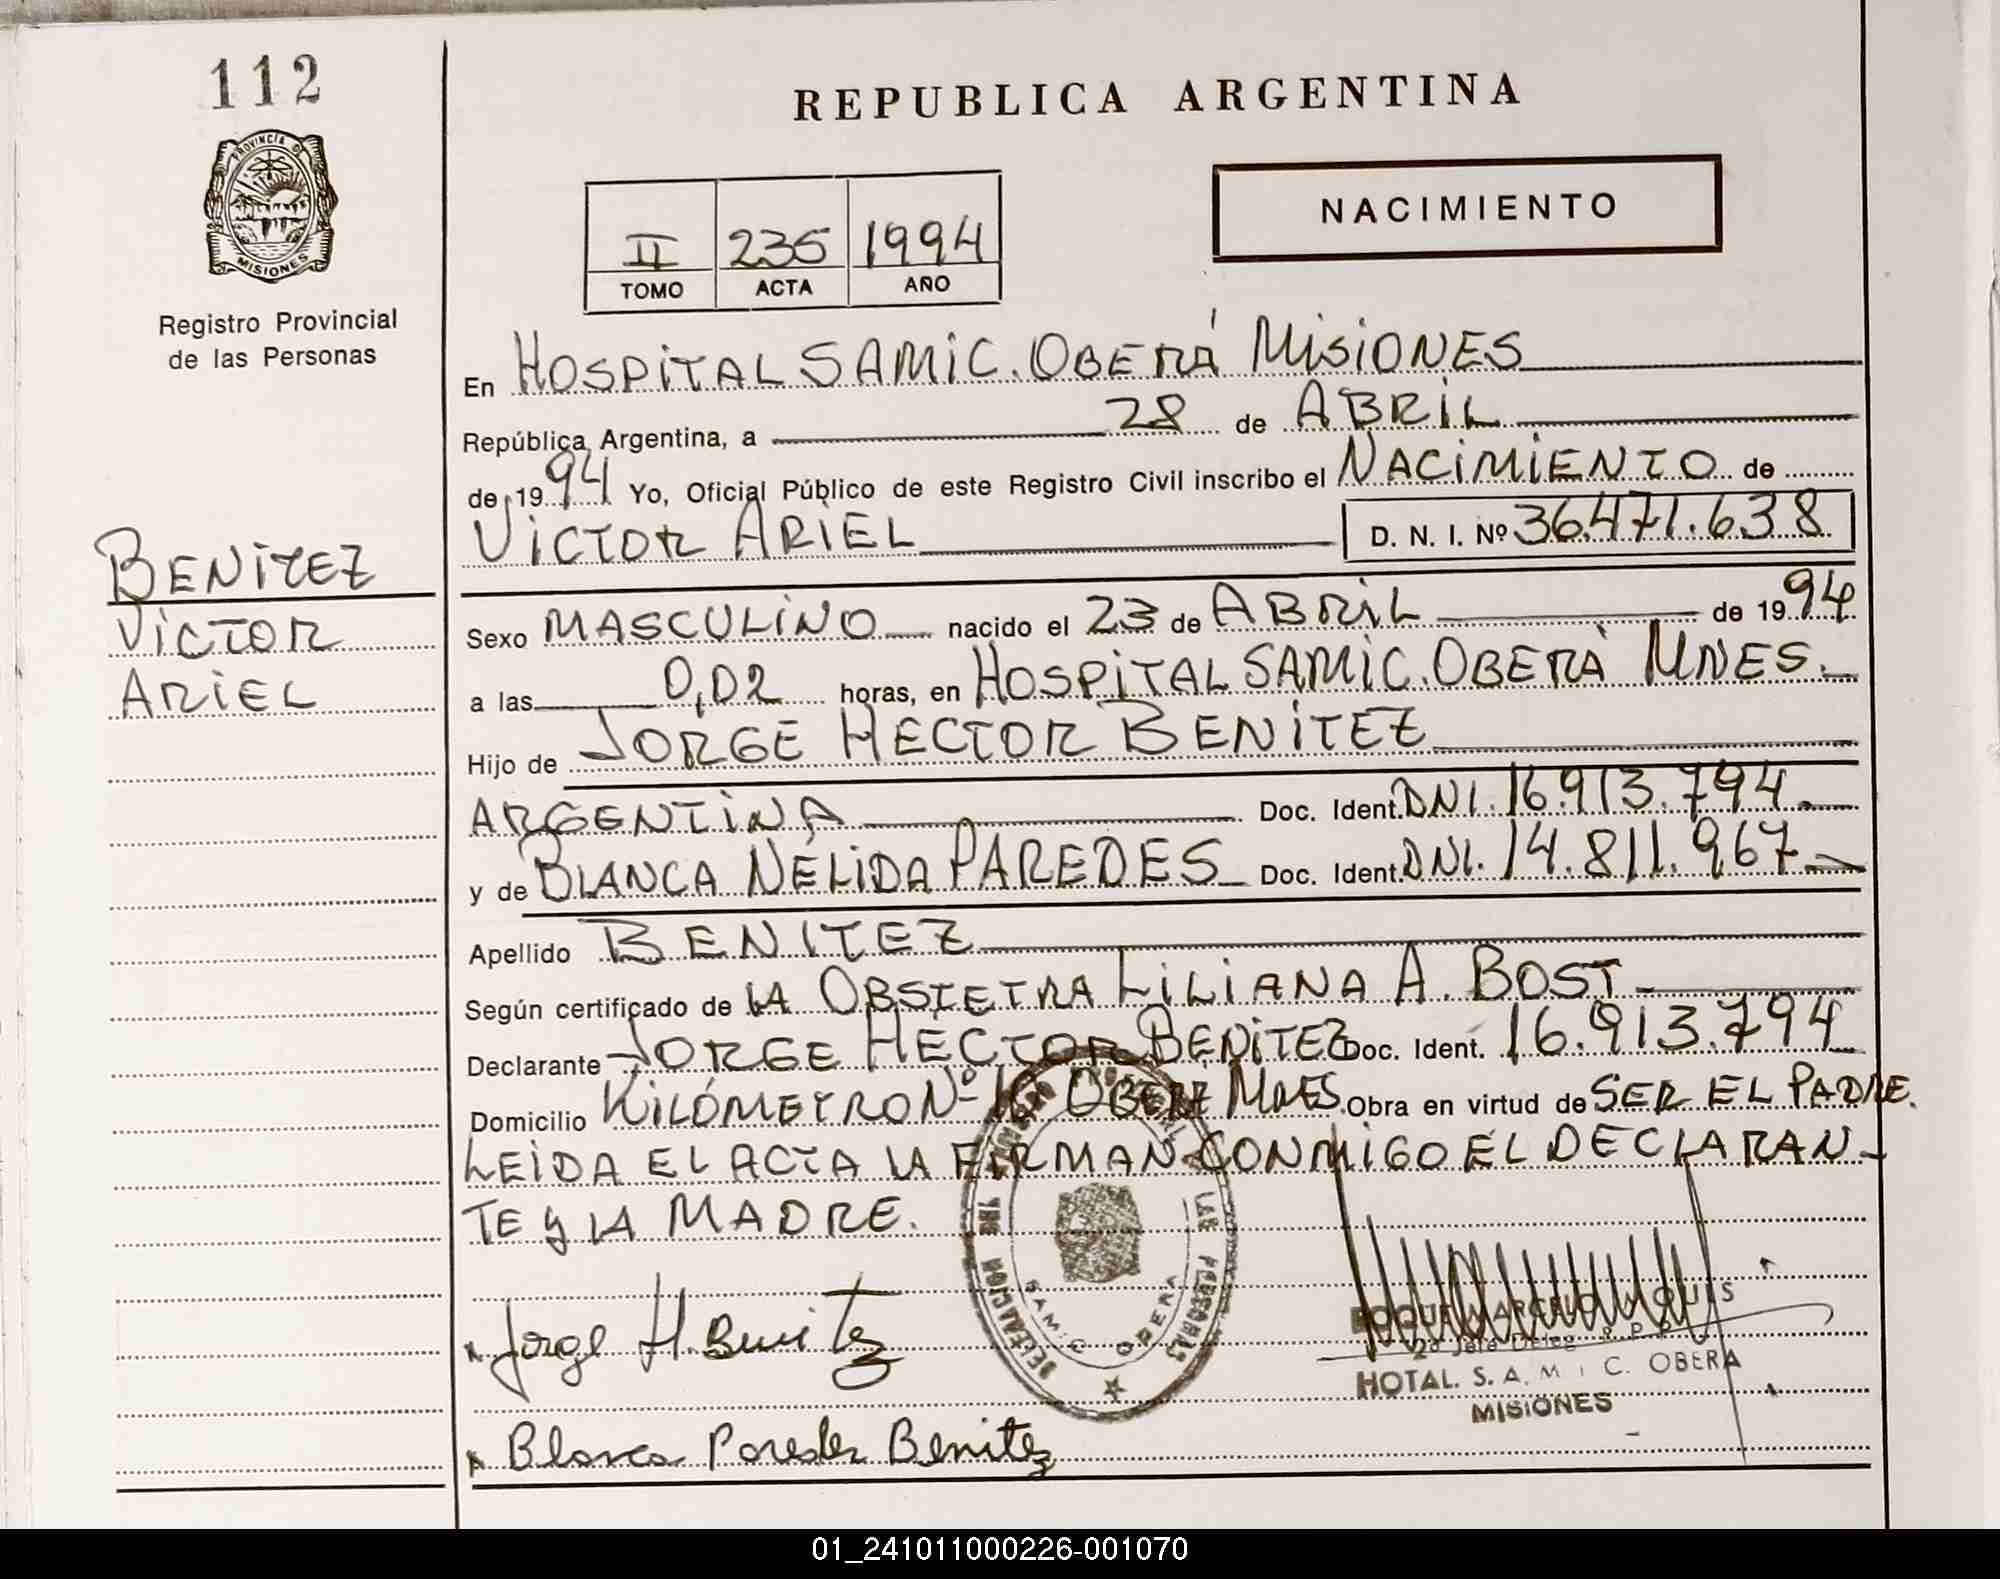 112
PROVINCIA D
MISIONES
Registro Provincial
de las Personas
BENITEZ
VICTOR
ARIEL
REPUBLICA ARGENTINA
NACIMIENTO
II 235 1994
TOMO ACTA AÑO
En HOSPITAL SAMIC. OBERÁ MISIONES
República Argentina, a 28 de ABRIL
de 1994 Yo, Oficial Público de este Registro Civil inscribo el NACIMIENTO de
VICTOR ARIEL D. N. I. Nº 36.471.638
Sexo MASCULINO nacido el 23 de ABRIL de 1994
a las 0,02 horas, en HOSPITAL SAMIC. OBERÁ MNES.
Hijo de JORGE HECTOR BENITEZ
ARGENTINA Doc. Ident. DNI. 16.913.794
y de BLANCA NÉLIDA PAREDES Doc. Ident. DNI. 14.811.967
Apellido BENITEZ
Según certificado de LA OBSTETRA LILIANA A. BOST
Declarante JORGE HÉCTOR BENITEZ Doc. Ident. 16.913.794
Domicilio KILÓMETRO Nº 10 OBERÁ MNES. Obra en virtud de SER EL PADRE.
LEIDA EL ACTA LA FIRMAN CONMIGO EL DECLARAN-
TE Y LA MADRE.
Jorge H. Benitez
Blanca Paredes Benitez
DELEGACION LAS PERSONAS
SAMIC OBERA
ROQUE MARCELO
2º Jefe Deleg. R. P. P.
HOTAL. S. A. M I C. OBERA
MISIONES
01_241011000226-001070